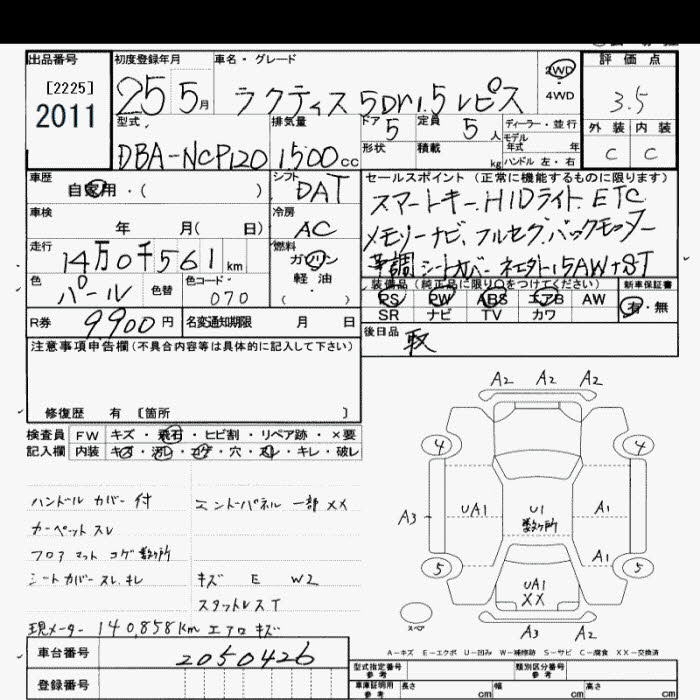 出品番号 初度登録年月 車名・グレード 評価点
[2225] 2011
25 5月 ラクティス 5Dr1.5レピス
2WD
4WD
3.5
型式 排気量 ドア 5 定員 5人 ディーラー・並行
モデル年式 年
外装 内装
DBA-NCP120 1500cc 形状 積載 kg ハンドル 左・右
C C
車歴 自家用・( )
シフト DAT
セールスポイント(正常に機能するものに限ります)
スマートキー.HIDライト.ETC
車検 年 月( 日)
冷房 AC
メモリーナビ.フルセグ.バックモニター
走行 14万0千561km
燃料 ガソリン
軽油
革調シートカバー 社外15AW+ST
色 パール 色替 色コード 070 ( )
装備品(純正品に限り○をつけてください) 新車保証書
PS PW ABS エアB AW
SR ナビ TV カワ
有・無
R券 9900円 名変通知期限 月 日
後日品 取
注意事項申告欄(不具合内容等は具体的に記入して下さい)
修復歴 有 〔箇所 〕
検査員 FW キズ・飛石・ヒビ割・リペア跡・×要
記入欄 内装 キズ・汚レ・コゲ・穴・スレ・キレ・破レ
ハンドルカバー付 エンドパネル 一部 XX
カーペットスレ
フロアマットコゲ数ヶ所
シートカバースレ.キレ キズ E W2
スタットレスT
現メーター 140,858km エアロキズ
A2 A2 A2
4 4
A3 UA1 U1 数ヶ所 A1
A1
5 5
UA1
XX
スペア
A3 A2
A-キズ E-エクボ U-凹み W-補修跡 S-サビ C-腐食 XX-交換済
車台番号 2050426
登録番号
型式指定番号 参考 類別区分番号 参考
車庫証明用 参考 長さ cm 幅 cm 高さ cm